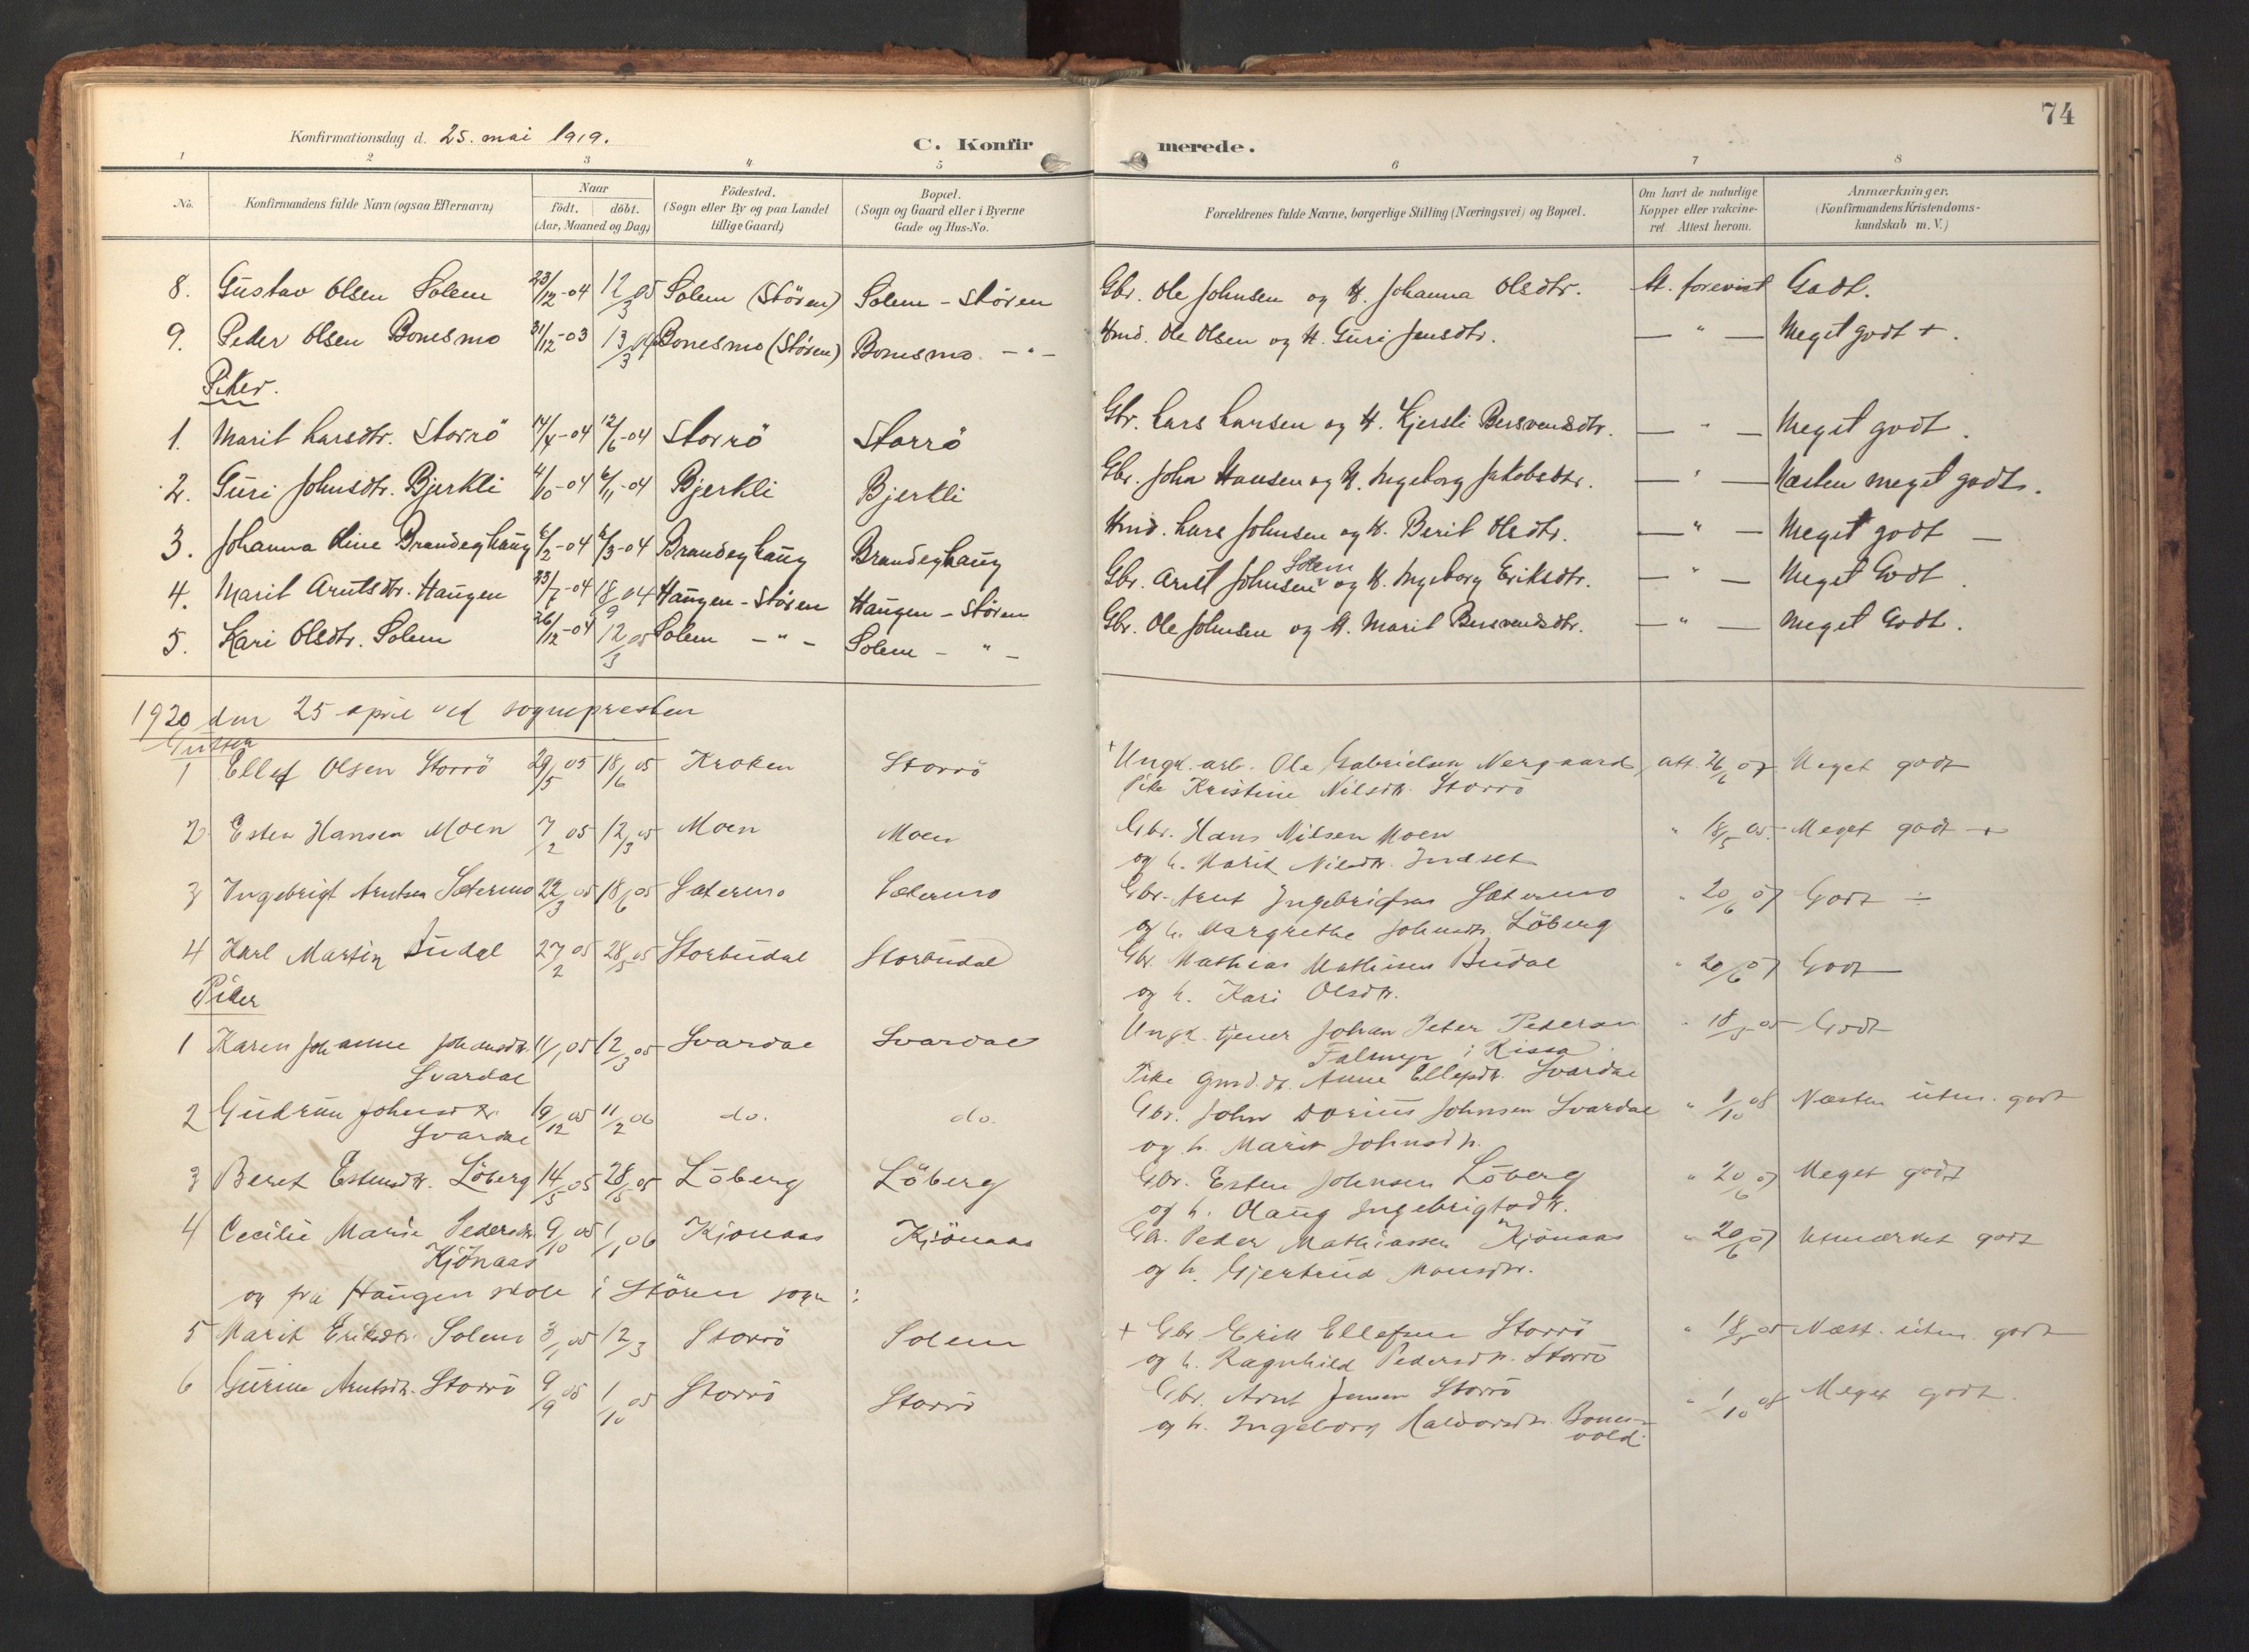 74
Konfirmationsdag d. 25. mai 1919.
C. Konfirmerede.
1 2 3 4 5 6 7 8
No. Konfirmandens fulde Navn (ogsaa Efternavn) Naar födt. döbt. (Aar, Maaned og Dag) Födested. (Sogn eller By og paa Landet tillige Gaard) Bopæl. (Sogn og Gaard eller i Byerne Gade og Hus-No. Forældrenes fulde Navne, borgerlige Stilling (Næringsvei) og Bopæl. Om havt de naturlige Kopper eller vakcineret. Attest herom. Anmærkninger. (Konfirmandens Kristendomskundskab m. V.)
8. Gustav Olsen Solem 23/12-04 12/3 05 Solem (Stören) Solem - Stören Gbr. Ole Johnsen og H. Johanna Olsdtr. At. forevist Godt.
9. Peder Olsen Bonesmo 31/12-03 13/3 04 Bonesmo (Stören) Bonesmo - " - Hmd. Ole Olsen og H. Guri Jensdtr. — " — Meget godt +.
Piker.
1. Marit Larsdtr. Storrö 14/4-04 12/6-04 Storrö Storrö Gbr. Lars Larsen og H. Kjersti Bersvendsdtr. — " — Meget godt.
2. Guri Johnsdtr. Bjerkli 4/10-04 6/11-04 Bjerkli Bjerkli Gbr. John Hansen og H. Ingeborg Jakobsdtr. — " — Næsten meget godt.
3. Johanna Oline Brandeghaug 6/2-04 6/3-04 Brandeghaug Brandeghaug Hmd. Lars Johnsen og H. Berit Olsdtr. — " — Meget godt —
4. Marit Arntsdtr. Haugen 23/7-04 18/9 04 Haugen - Stören Haugen - Stören Gbr. Arnt Johnsen Solem og H. Ingeborg Eriksdtr. — " — Meget Godt.
5. Kari Olsdtr. Solem 26/12-04 12/3 05 Solem - " - Solem - " - Gbr. Ole Johnsen og H. Marit Bersvendsdtr. — " — Meget Godt.
1920 den 25 april ved sognepresten
Gutter
1 Ellef Olsen Storrö 29/5 05 18/6 05 Kroken Storrö + Ungk. arb. Ole Gabrielsen Nergaard, att. 26/6 07 Meget godt
Pike Kristine Nilsdtr. Storrö
2 Esten Hansen Moen 7/2 05 12/3 05 Moen Moen Gbr. Hans Nilsen Moen " 18/5 05. Meget godt +
og h. Marit Nilsdtr. Indset
3 Ingebrigt Arntsen Sætermo 22/3 05 18/6 05 Sætermo Sætermo Gbr. Arnt Ingebrigtsen Sætermo " 20/6 07 Godt ÷
og h. Margrethe Johnsdtr. Löberg
4 Karl Martin Budal 27/2 05 28/5 05 Storbudal Storbudal Gbr. Mathias Mathisen Budal " 20/6 07 Godt
og h. Kari Olsdtr.
Piker
1 Karen Johanne Johansdtr. 11/1 05 12/3 05 Svardal Svardal Ungk. tjener Johan Peter Pedersen " 18/5 05 Godt
Svardal i Rissa
Pike gmd.dt. Anne Ellefsdtr. Svardal
2 Gudrun Johnsdtr. 19/12 05 11/2 06 do. do. Gbr. John Dorius Johnsen Svardal " 1/10 08 Næsten utm. godt
Svardal og h. Marit Johnsdtr.
3 Beret Estensdtr. Löberg 14/5 05 28/5 05 Löberg Löberg Gbr. Esten Johnsen Löberg " 20/6 07 Meget godt
og h. Olaug Ingebrigtsdtr.
4 Cecilie Marie Pedersdtr. 9/10 05 1/1 06 Kjönaas Kjönaas Gbr. Peder Mathiassen Kjönaas " 20/6 07 Utmærket godt
Kjönaas og h. Gjertrud Monsdtr.
og fra Haugen skole i Stören sogn:
5 Marit Eriksdtr. Solem 3/1 05 12/3 Storrö Solem + Gbr. Erik Ellefsen Storrö " 18/5 05 Næst. utm. godt
og h. Ragnhild Pedersdtr. Storrö
6 Gurine Arntsdtr. Storrö 9/9 05 1/10 05 Storrö Storrö Gbr. Arnt Jensen Storrö " 1/10 08 Meget godt.
og h. Ingeborg Halvorsdtr. Bonesvold